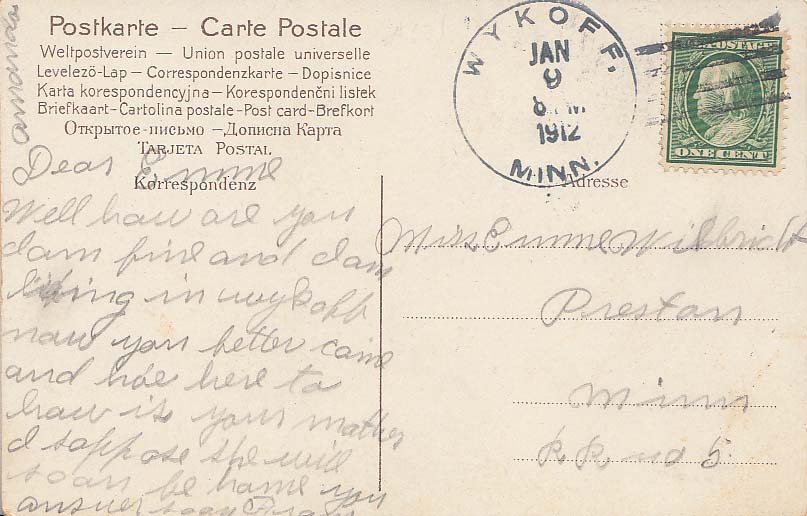 Postkarte – Carte Postale
Weltpostverein – Union postale universelle
Levelezö-Lap – Correspondenzkarte – Dopisnice
Karta korespondencyjna – Korespondenčni listek
Briefkaart – Cartolina postale – Post card – Brefkort
Открытое письмо – Дописна Карта
Tarjeta Postal
Korrespondenz
Adresse
WYKOFF.
JAN
9
8 PM
1912
MINN.
POSTAGE
ONE CENT
Dear Emme
Well how are you
I am fine and I am
living in wykoff
now you better come
and here to
how is your mother
I soppose she will
soon be home you
answer soon From
amanda
Miss Emme Wilbricht
Preston
Minn
R.R. no 5